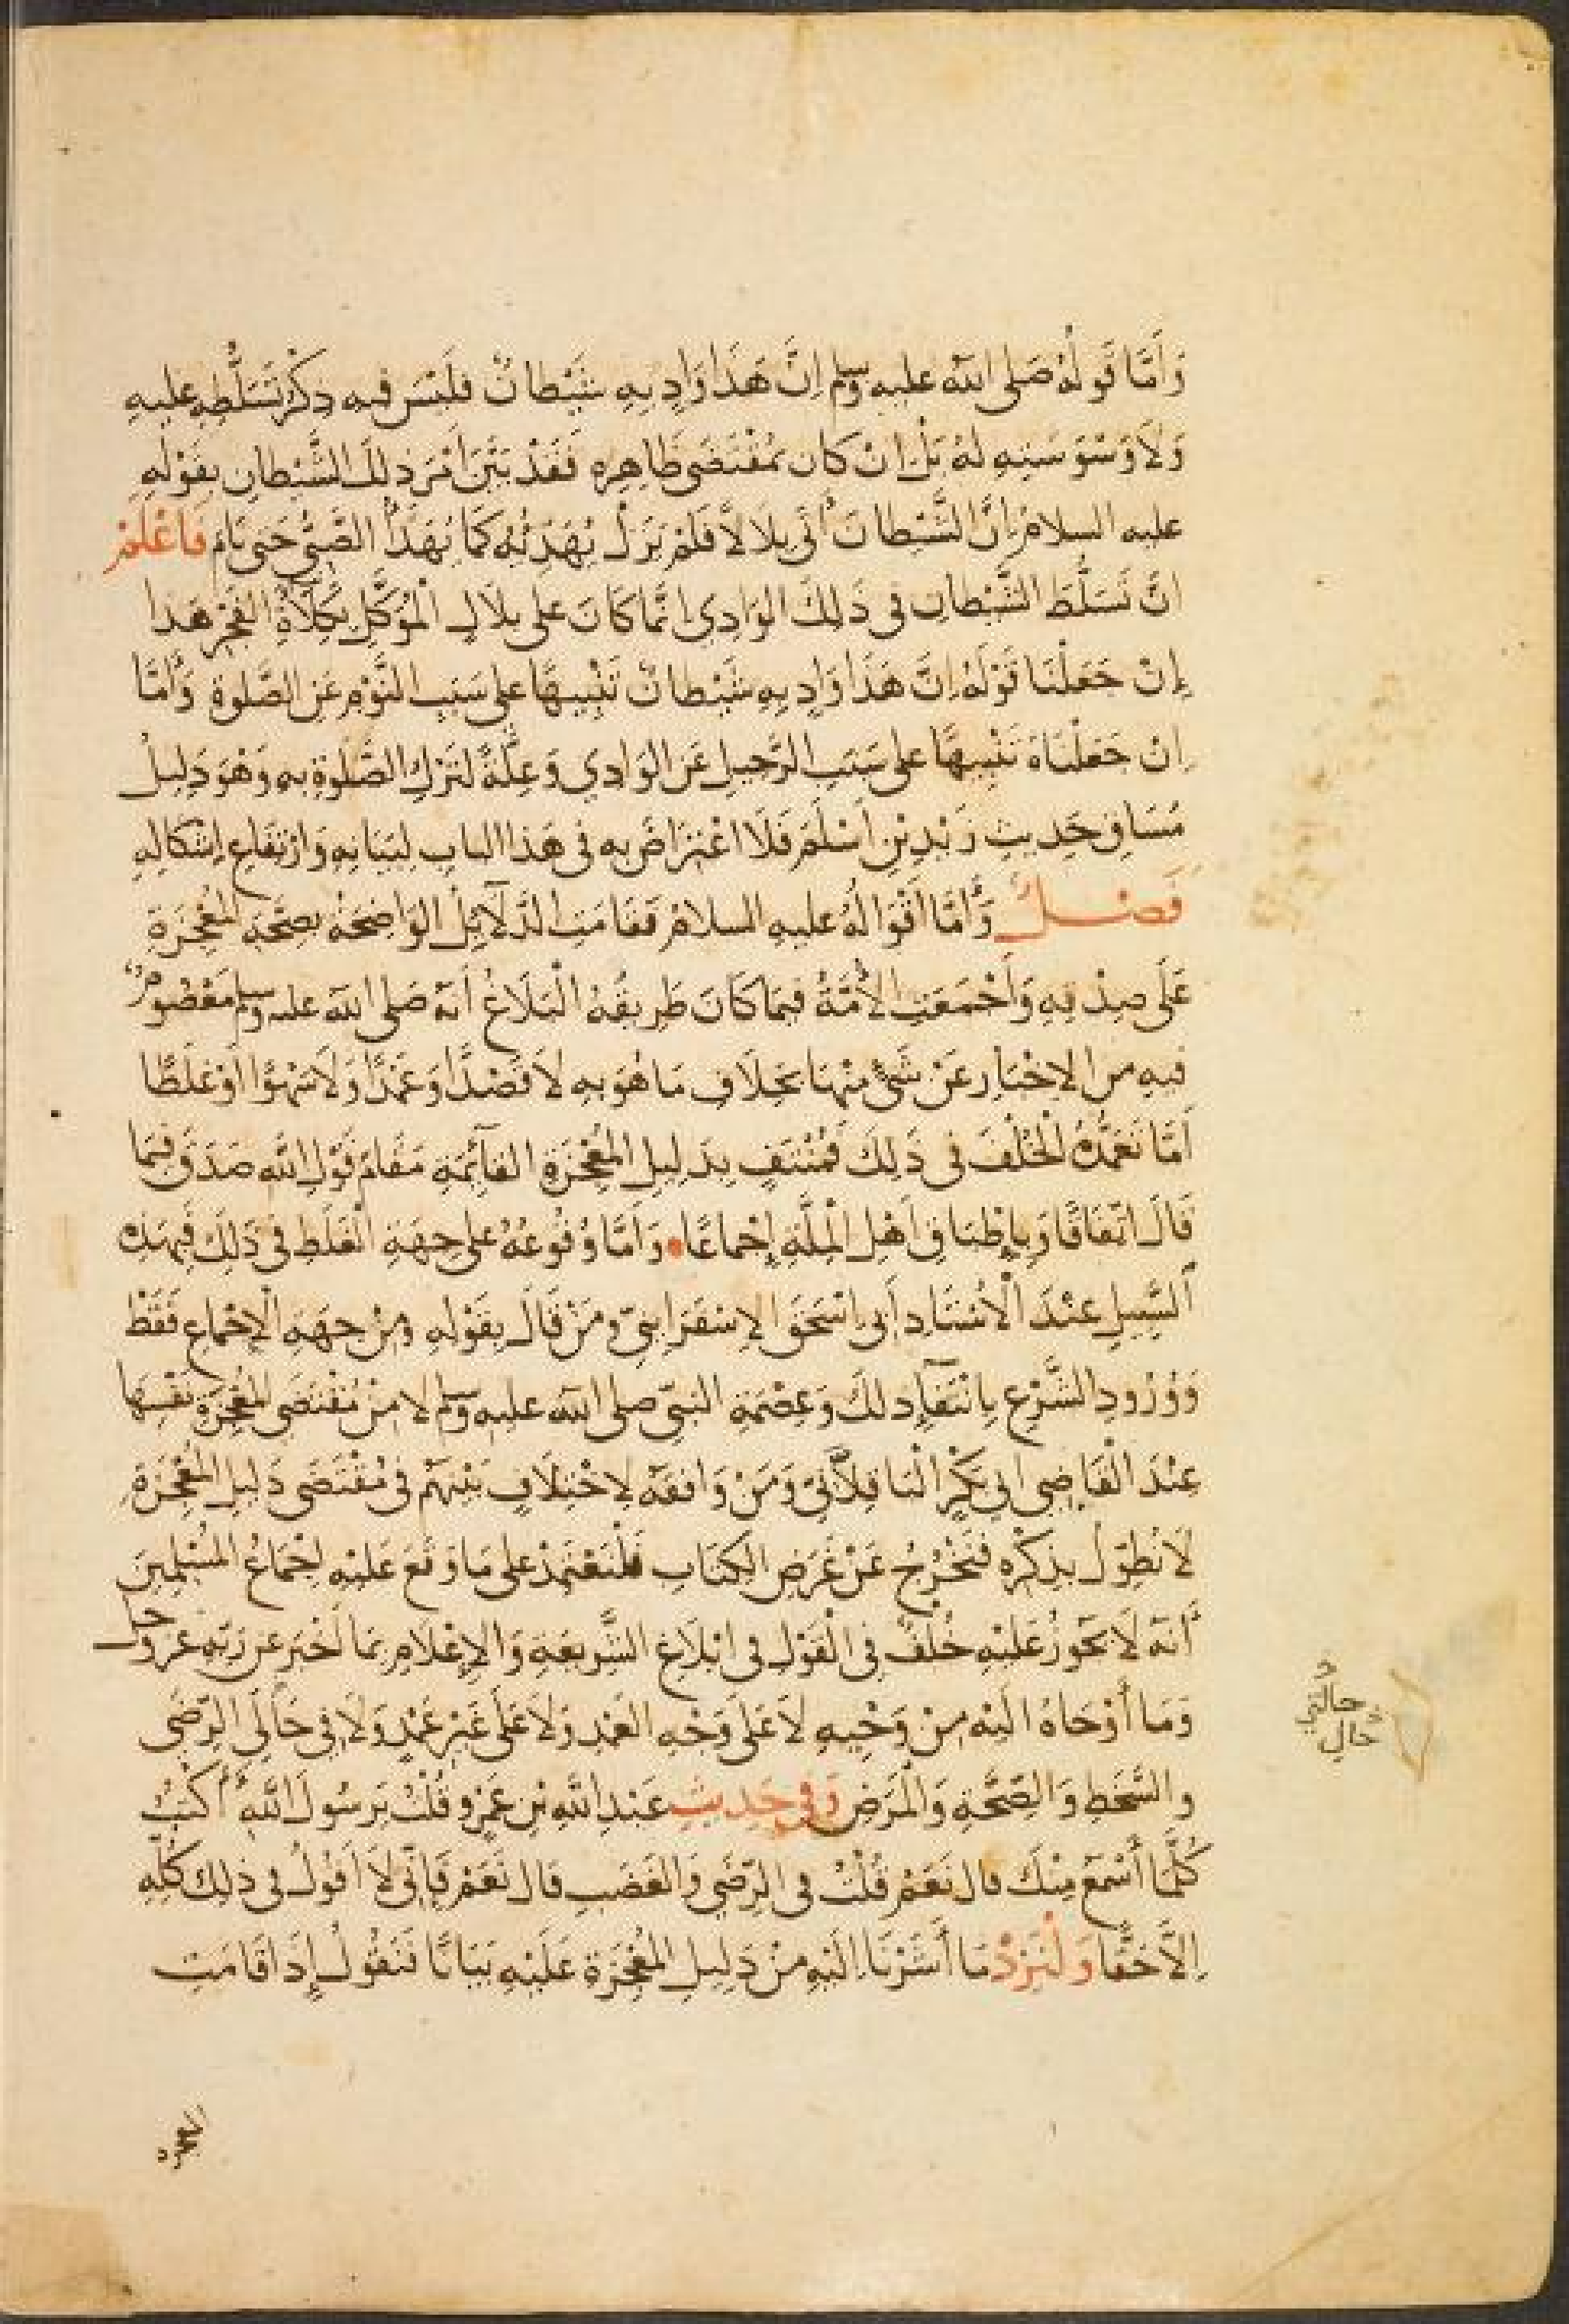 وَأَمَّا قَوْلُهُ صَلى الله عليه وسلم اِنَّ هَذَا وَادٍ بِهِ شَيْطانٌ فلَيْسَ فيه ذِكْرُ تَسَلُّطِهِ عليهِ
وَلَا وَسْوَسَتِهِ لهُ بَلْ اِنْ كان بمُقْتَضَى ظَاهِرِهِ فَقَدْ بَيَّنَ اَمْرَ ذلكَ الشَّيْطانِ بِقَوْلِهِ
عليه السلامُ اِنَّ الشَّيْطانَ أَتى بِلَالًا فَلَمْ يَزَلْ يُهَدِّئُهُ كَمَا يُهَدَّأُ الصَّبِيُّ حَتى نَامَ فَاعْلَمْ
انَّ تَسَلُّطَ الشَّيْطانِ فى ذَلِكَ الوَادِي انَّمَا كَانَ على بِلَالٍ الْمُوَكَّلِ بِكِلَأَةِ الفَجْرِ هَذا
إِنْ جَعَلْنَا قَوْلَهُ اِنَّ هَذَا وَادٍ بِهِ شَيْطانٌ تَنْبِيهًا على سَبَبِ النَّوْمِ عَنِ الصَّلوةِ وَأَمَّا
اِنْ جَعَلْنَاهُ تَنْبِيهًا على سَبَبِ الرَّحِيلِ عَنِ الوَادِي وَعِلَّةً لتَرْكِ الصَّلوةِ بهِ وَهْوَ دَلِيلُ
مَسَاقِ حَدِيثِ زَيْدِ بْنِ اَسْلَمَ فَلَا اعْتِرَاضَ بهِ فى هَذا الباب لبَيَانِهِ وَارْتِفَاعِ اِشْكَالِهِ
فَصْــلٌ وَأَمَّا أَقْوَالُهُ عليهِ السلامُ فَقَامَتِ الدَّلَآئِلُ الوَاضِحَةُ بِصِحَّةِ المُعْجِزَةِ
عَلَى صِدْقِهِ وَأَجْمَعَتِ الأُمَّةُ فيمَا كَانَ طَرِيقُهُ الْبَلَاغُ أَنهُ صَلى الله عليه وسلم مَعْصُومٌ
فيهِ من الاِخْبَارِ عَنْ شَىْءٍ منْهَا بِخِلَافِ مَا هُوَ بِهِ لَا قَصْدًا وَعَمْدًا وَلَا سَهْوًا اَوْ غَلَطًا
اَمَّا تَعَمُّدُ الْخُلْفِ فى ذَلِكَ فَمُنْتَفٍ بِدَلِيلِ المُعْجِزَةِ القَآئِمَةِ مَقَامَ قَوْلِ الله صَدَقَ فيمَا
قَالَ اتِّفَاقًا وَبِإِطْبَاقِ اَهْلِ الْمِلَّةِ إِجْمَاعًا وَأَمَّا وُقُوعُهُ على جِهَةِ الْغَلَطِ فى ذَلِكَ فَبِهَذِهِ
السَّبِيلِ عِنْدَ الْأُسْتَادِ أَبى اسْحَقَ الاِسْفَرَايِنِيّ وَمَنْ قَالَ بِقَوْلِهِ وَمِنْ جِهَةِ الْاِجْمَاعِ فَقَطْ
وَوُرُودِ الشَّرْعِ بِانْتِفَآءِ ذلكَ وَعِصْمَةِ النبىّ صلى الله عليه وسلم لا منْ مُقْتَضَى المُعْجِزَةِ نَفْسِهَا
عِنْدَ الْقَاضِى ابى بَكْرٍ الْبَاقِلَّانىّ وَمَنْ وَافقَهُ لِاخْتِلَافٍ بَيْنَهُمْ فى مُقْتَضَى دَلِيلِ المُعْجِزَةِ
لَا نُطَوِّلُ بِذِكْرِهِ فَنَخْرُجُ عَنْ غَرَضِ الكِتَابِ فَلْنَعْتَمِدْ على مَا وَقَعَ عَلَيْهِ اِجْمَاعُ المُسْلِمِينَ
أَنهُ لَا يَجُوزُ عَلَيْهِ خُلْفٌ فى الْقَوْلِ فى اِبْلَاغِ الشَّرِيعَةِ وَالاِعْلَامِ بمَا اَخْبَرَ عن رَبِّهِ عز وجل
وَمَا أَوْحَاهُ الَيْهِ مِنْ وَحْيِهِ لَا عَلَى وَجْهِ العَمْدِ وَلَا عَلَى غَيْرِ عَمْدٍ وَلَا فى حَالَىِ الرِّضَى
والسَّخَطِ وَالصِّحَّةِ وَالْمَرَضِ وَفى حَدِيثِ عَبْدِ اللهِ بْنِ عَمْرٍو قُلْتُ يَرَسُولَ اللهِ أَأَكْتُبُ
كُلَّمَا أَسْمَعُ مِنْكَ قال نَعَمْ قُلْتُ فى الرِّضَى وَالغَضَبِ قال نَعَمْ فَإِنّى لَا اَقُولُ فى ذلكَ كُلِّهِ
اِلَّا حَقًّا وَلْنَزِدْ مَا أَشَرْنَا اِلَيْهِ مِنْ دَلِيلِ المُعْجِزَةِ عَلَيْهِ بَيَانًا فَنَقُولُ إِذَا قَامَتِ
حالتي
حال